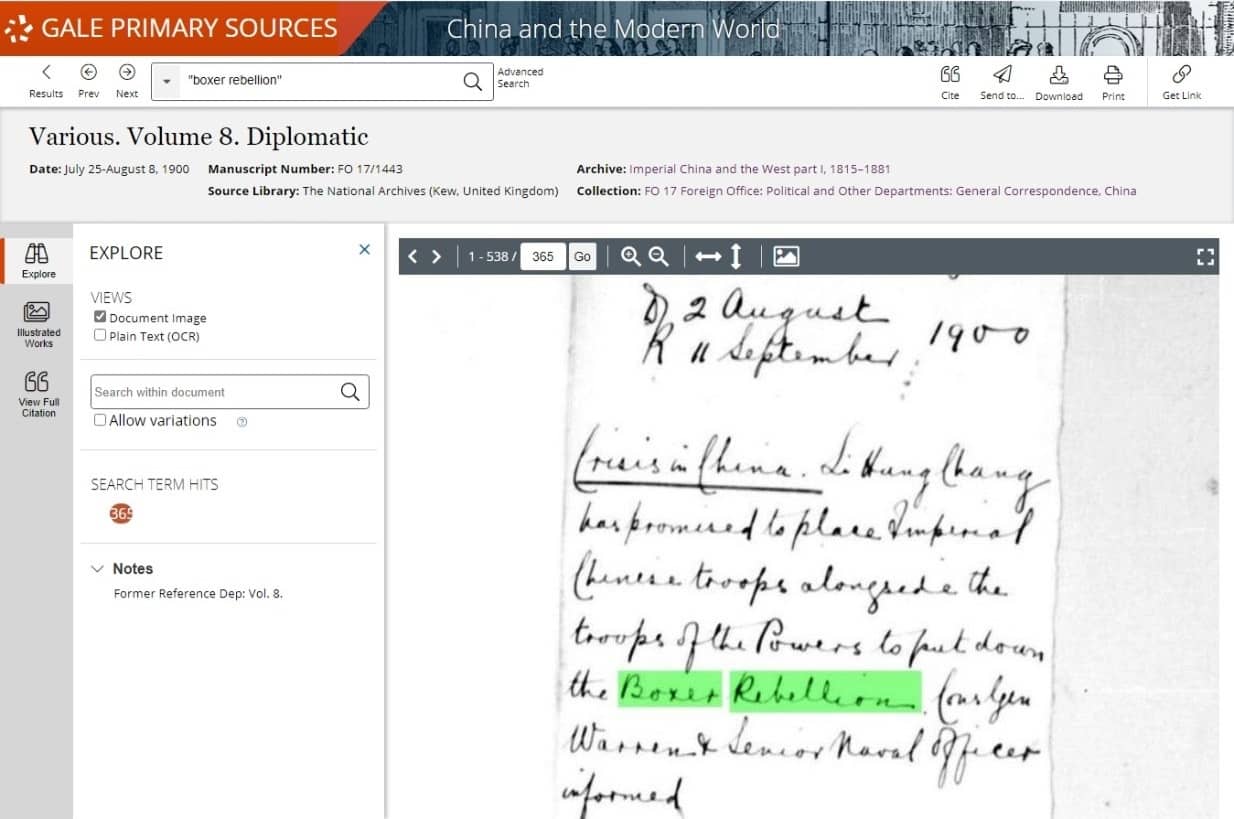 GALE PRIMARY SOURCES
China and the Modern World
Results
Prev
Next
"boxer rebellion"
Advanced
Search
Cite
Send to...
Download
Print
Get Link
Various. Volume 8. Diplomatic
Date: July 25-August 8, 1900 Manuscript Number: FO 17/1443 Archive: Imperial China and the West part I, 1815–1881
Source Library: The National Archives (Kew, United Kingdom) Collection: FO 17 Foreign Office: Political and Other Departments: General Correspondence, China
Explore
Illustrated
Works
View Full
Citation
EXPLORE
VIEWS
Document Image
Plain Text (OCR)
Search within document
Allow variations
SEARCH TERM HITS
365
Notes
Former Reference Dep: Vol. 8.
1 - 538 / 365 Go
D 2 August
R 11 September 1900
Crisis in China. Li Hung Chang
has promised to place Imperial
Chinese troops alongside the
troops of the Powers to put down
the Boxer Rebellion. ConsGen
Warren & Senior Naval Officer
informed